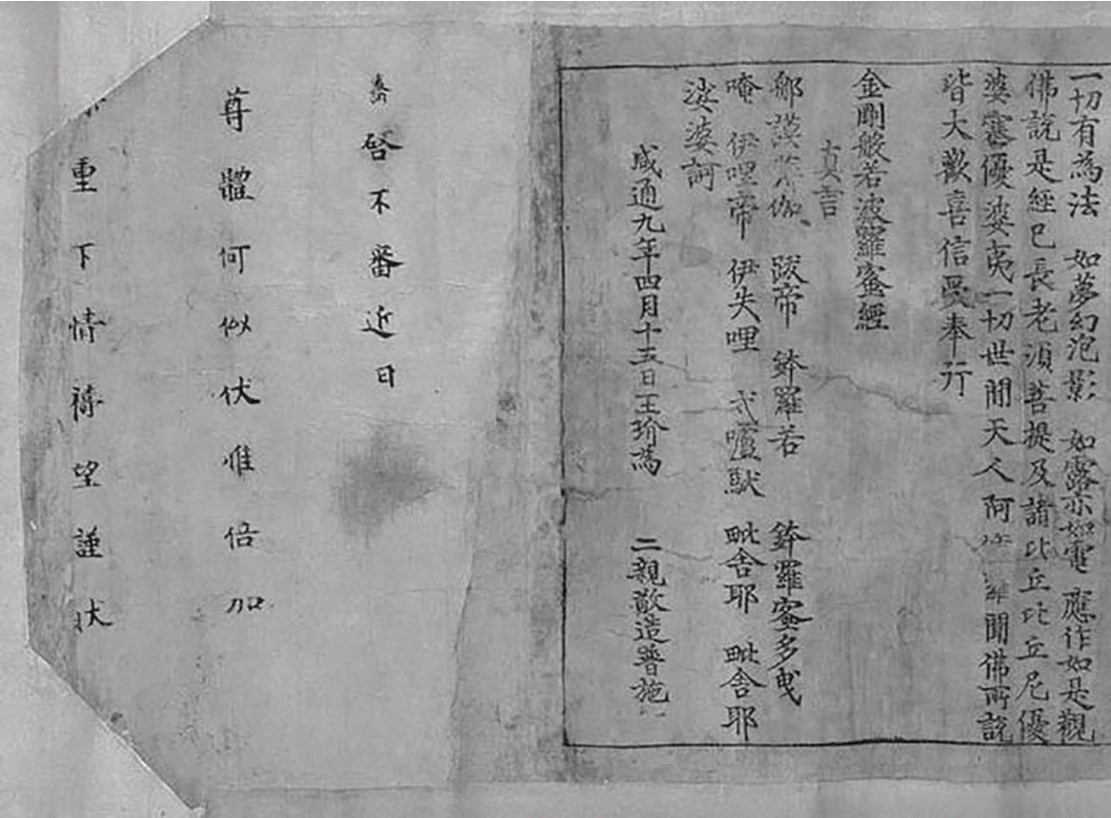 一切有為法 如夢幻泡影 如露亦如電 應作如是觀
佛說是經已長老須菩提及諸比丘比丘尼優
婆塞優婆夷一切世閒天人阿脩羅聞佛所說
皆大歡喜信受奉行
金剛般若波羅蜜經
真言
那謨薄伽 跋帝 鉢羅若 鉢羅蜜多曳
唵 伊哩帝 伊失哩 戍嚧馱 毗舍耶 毗舍耶
娑婆訶
咸通九年四月十五日王玠為 二親敬造普施
啓不審近日
尊體何似伏惟倍加
重下情禱望謹狀